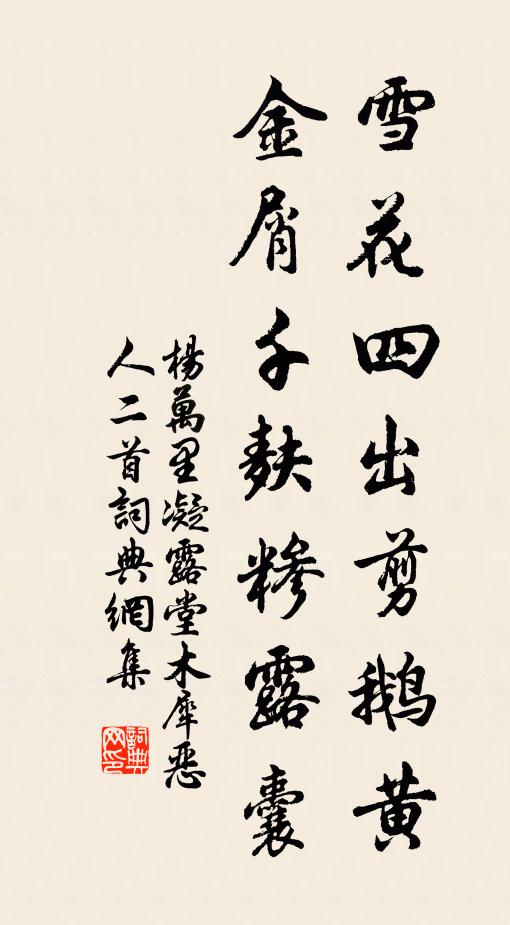 雪花四出剪鹅黄
金屑千麸糁露囊
楊萬里凝露堂木犀恶
人二首詞典網集
詞典
网印